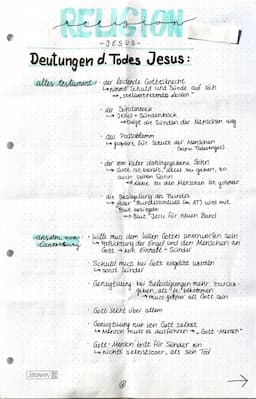 RELIGION
religion
- JESUS -
Deutungen d. Todes Jesus:
altes testament
· der leidende Gottesknecht
↳ nimmt Schuld und Sünde auf sich
→ „stellvertretendes Leiden"
· der Sündenbock
↳ Jesus = Sündenbock
↳ trägt die Sünden der Menschen weg
· das Passahlamm
↳ geopfert, für Schutz der Menschen
· der vom Vater dahingegebene Sohn
↳ Gott ist bereit, alles zu geben, so
auch seinen Sohn
↳ Liebe zu den Menschen ist größer
· die Besiegelung des Bundes
↳ Bundesschluss (im AT) wird mit
Blut besiegelt
→ Blut Jesu für neuen Bund
anselm von
Canterbury
· Wille muss dem Willen Gottes unterworfen sein
↳ Verpflichtung der Engel und den Menschen an
Gott → kein Einhalt = Sünder
· Schuld muss bei Gott eingelöst werden
↳ sonst Sünder
· Genugtuung: bei Beleidigungen mehr zurück-
geben, als er bekommen
↳ muss größer als Gott sein
· Gott steht über allem
· Genugtuung nur von Gott selbst
↳ Mensch muss es ausführen → „Gott-Mensch"
· Gott-Mensch tritt für Sünder ein
↳ nichts selbstloser, als sein Tod